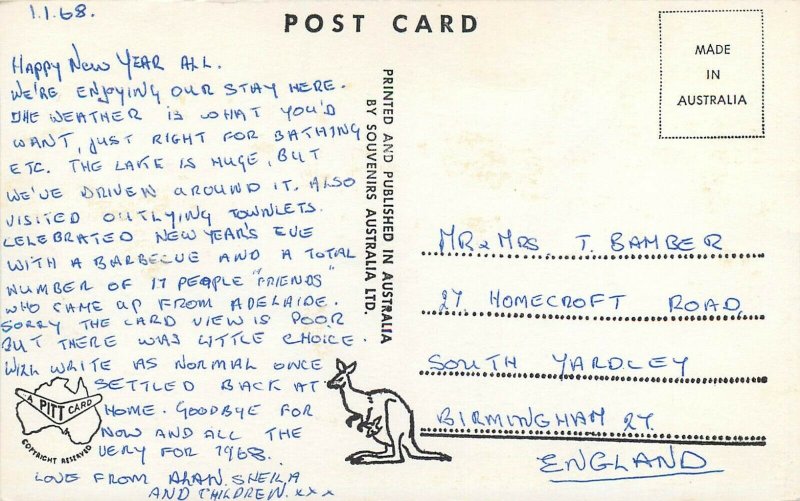 1.1.68.
POST CARD
MADE
IN
AUSTRALIA
HAPPY NEW YEAR ALL.
WE'RE ENJOYING OUR STAY HERE.
THE WEATHER IS WHAT YOU'D
WANT, JUST RIGHT FOR BATHING
ETC. THE LAKE IS HUGE, BUT
WE'VE DRIVEN AROUND IT. ALSO
VISITED OUTLYING TOWNLETS.
CELEBRATED NEW YEAR'S EVE
WITH A BARBECUE AND A TOTAL
NUMBER OF 17 PEOPLE "FRIENDS"
WHO CAME UP FROM ADELAIDE.
SORRY THE CARD VIEW IS POOR
BUT THERE WAS LITTLE CHOICE.
WILL WRITE AS NORMAL ONCE
SETTLED BACK AT
HOME. GOODBYE FOR
NOW AND ALL THE
VERY FOR 1968.
LOVE FROM ALAN. SHEILA
AND CHILDREN. xxx
A PITT CARD
COPYRIGHT RESERVED
PRINTED AND PUBLISHED IN AUSTRALIA
BY SOUVENIRS AUSTRALIA LTD.
MR & MRS. T. BAMBER
27. HOMECROFT ROAD,
SOUTH YARDLEY
BIRMINGHAM 27.
ENGLAND